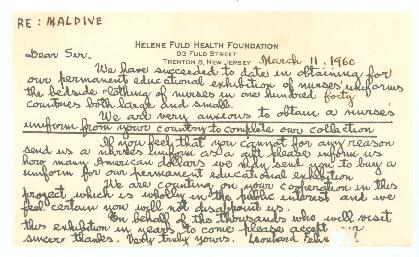 RE: MALDIVE
HELENE FULD HEALTH FOUNDATION
93 FULD STREET
TRENTON 8, NEW JERSEY
March 11, 1960
Dear Sir.
We have succeeded to date in obtaining for
our permanent educational exhibition of nurses' uniforms
the bedside clothing of nurses in one hundred forty
countries both large and small.
We are very anxious to obtain a nurse's
uniform from your country to complete our collection
If you feel that you cannot for any reason
send us a nurse's uniform as a gift please inform us
how many American dollars we may send you to buy a
uniform for our permanent educational exhibition.
We are counting on your cooperation in this
project which is wholly in the public interest and we
feel certain you will not disappoint us.
On behalf of the thousands who will visit
this exhibition in years to come please accept our
sincere thanks. Very truly yours. Leonhard